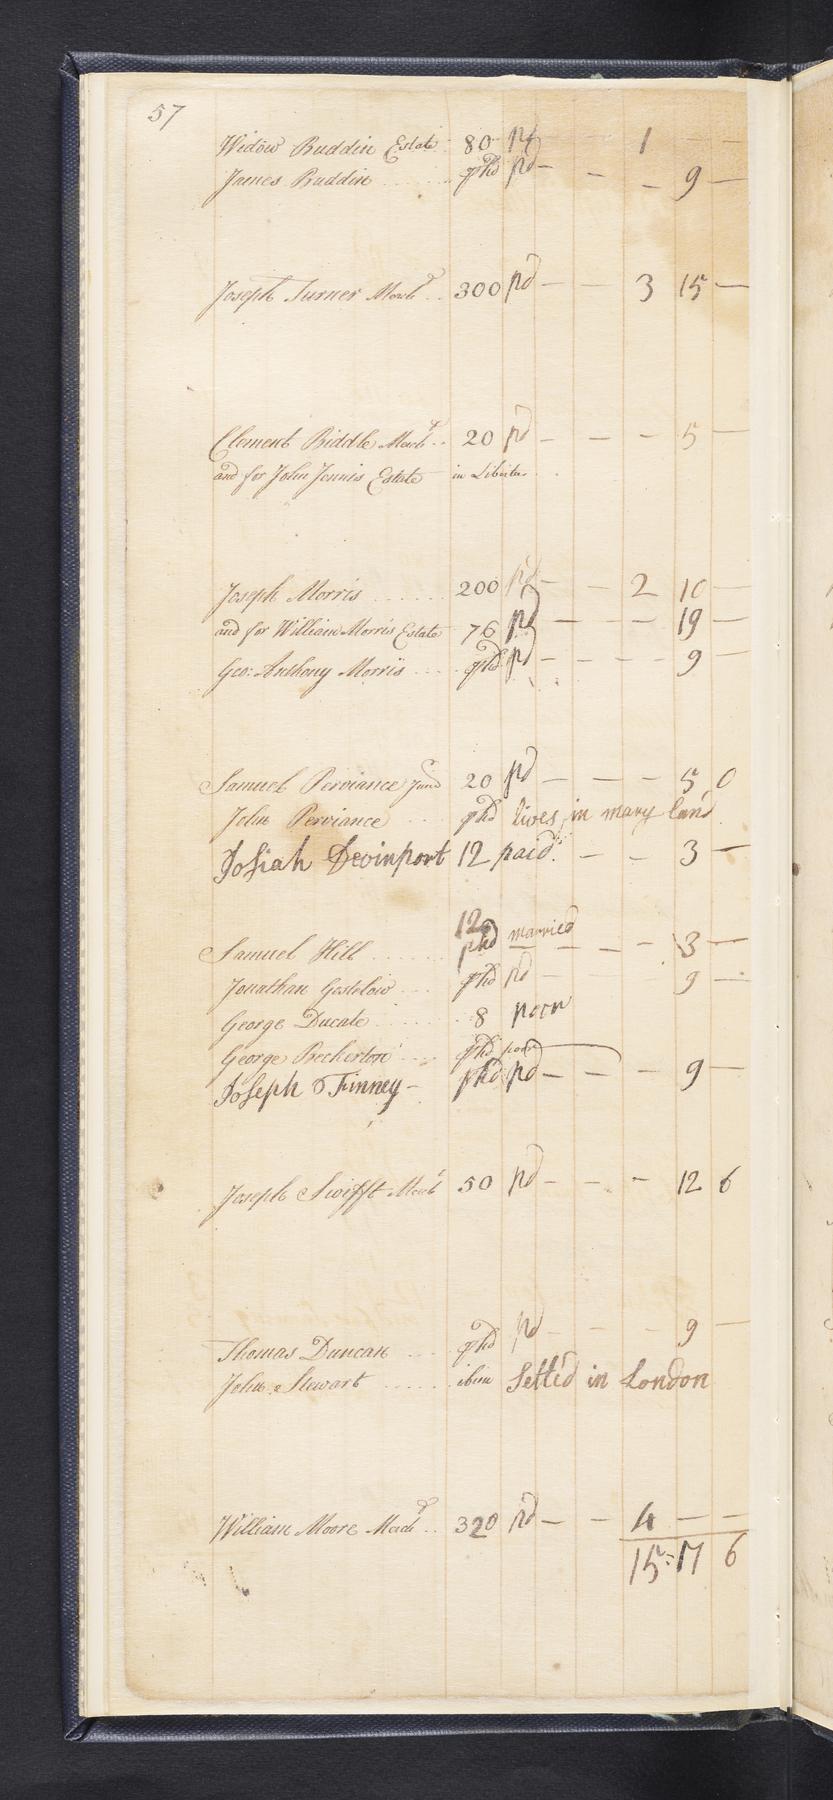 57
Widow Buddin Estate 80 pd 1 — —
James Buddin phd pd — — — 9 —
Joseph Turner March.t 300 pd — — 3 15 —
Clement Biddle March.t 20 pd — — — 5 —
and for John Jennis Estate in Liberties
Joseph Morris 200 pd — — 2 10 —
and for William Morris Estate 76 pd — — — 19 —
Geo: Anthony Morris phd pd — — — — 9 —
Samuel Perviance Jund 20 pd — — — 5 0
John Perviance phd lives in mary land
Josiah Devinport 12 paid. — — 3 —
12
Samuel Hill phd married — — — — 3 —
Jonathan Gostelow phd pd — — — 9 —
George Ducate 8 poor
George Beckerton phd poor
Joseph Finney — phd pd — — — 9 —
Joseph Swifft March.t 50 pd — — — 12 6
Thomas Duncan phd pd — — — — 9 —
John Stewart ibim Settl'd in London
William Moore March.t 320 pd — — 4 — —
15=17 6